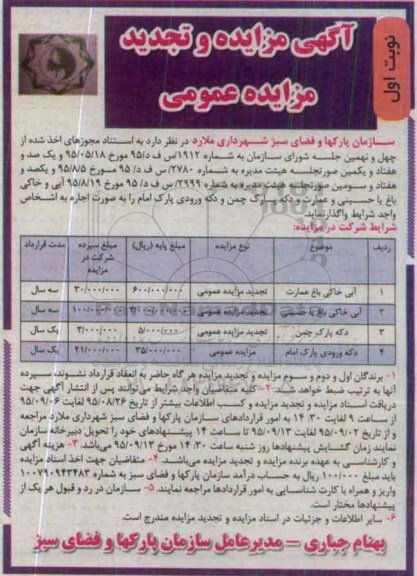 آگهی مزایده و تجدید
مزایده عمومی
نوبت اول
سازمان پارکها و فضای سبز شهرداری ملارد در نظر دارد به استناد مجوزهای اخذ شده از
چهل و نهمین جلسه شورای سازمان به شماره ۱۹۱۲/س ف د/۹۵ مورخ ۹۵/۰۵/۱۸ و یک صد و
هفتاد و یکمین صورتجلسه هیئت مدیره به شماره ۲۷۸۰/س ف د/ ۹۵ مورخ ۹۵/۸/۵ و یکصد و
هفتاد و سومین صورتجلسه هیئت مدیره به شماره ۲۹۹۹/س ف د/۹۵ مورخ ۹۵/۸/۱۹ آبی و خاکی
باغ یا حسینی و عمارت، دکه پارک چمن و دکه ورودی پارک امام را به صورت اجاره به اشخاص
واجد شرایط واگذار نماید
شرایط شرکت در مزایده:
ردیف موضوع نوع مزایده مبلغ پایه (ریال) مبلغ سپرده شرکت در مزایده مدت قرارداد
۱ آبی خاکی باغ عمارت تجدید مزایده عمومی ۶۰۰/۰۰۰/۰۰۰ ۳۰/۰۰۰/۰۰۰ سه سال
۲ آبی خاکی باغ یا حسینی تجدید مزایده عمومی ۱۰۰/۰۰۰/۰۰۰ سه سال
۳ دکه پارک چمن تجدید مزایده عمومی ۵/۰۰۰/۰۰۰ ۳/۰۰۰/۰۰۰ یک سال
۴ دکه ورودی پارک امام مزایده عمومی ۳۵/۰۰۰/۰۰۰ ۲۱/۰۰۰/۰۰۰ یک سال
۱- برندگان اول و دوم و سوم مزایده و تجدید مزایده هر گاه حاضر به انعقاد قرارداد نشوند، سپرده
آنها به ترتیب ضبط خواهد شد. ۲- کلیه متقاضیان واجد شرایط می‌توانند پس از انتشار آگهی جهت
دریافت اسناد مزایده و تجدید مزایده و کسب اطلاعات بیشتر از تاریخ ۹۵/۰۸/۲۶ لغایت ۹۵/۰۹/۰۶
از ساعت ۹ لغایت ۱۴:۳۰ به امور قراردادهای سازمان پارکها و فضای سبز شهرداری ملارد مراجعه
و از تاریخ ۹۵/۰۹/۰۲ لغایت ۹۵/۰۹/۱۳ تا ساعت ۱۴ پیشنهادهای خود را تحویل دبیرخانه سازمان
نمایند زمان گشایش پیشنهادها روز شنبه ساعت ۱۴:۳۰ مورخ ۹۵/۰۹/۱۳ می‌باشد. ۳- هزینه آگهی
و کارشناسی به عهده برنده مزایده و تجدید مزایده می‌باشد. ۴- متقاضیان جهت اخذ اسناد مزایده
باید مبلغ ۱۰۰/۰۰۰ ریال به حساب درآمد سازمان پارکها و فضای سبز به شماره ۱۰۰۷۹۰۹۴۳۴۸۳
واریز و همراه با کارت شناسایی به امور قراردادها مراجعه نمایند. ۵- سازمان در رد و قبول هر یک از
پیشنهادها مختار است.
۶- سایر اطلاعات و جزئیات در اسناد مزایده و تجدید مزایده مندرج است.
بهنام جباری – مدیرعامل سازمان پارکها و فضای سبز